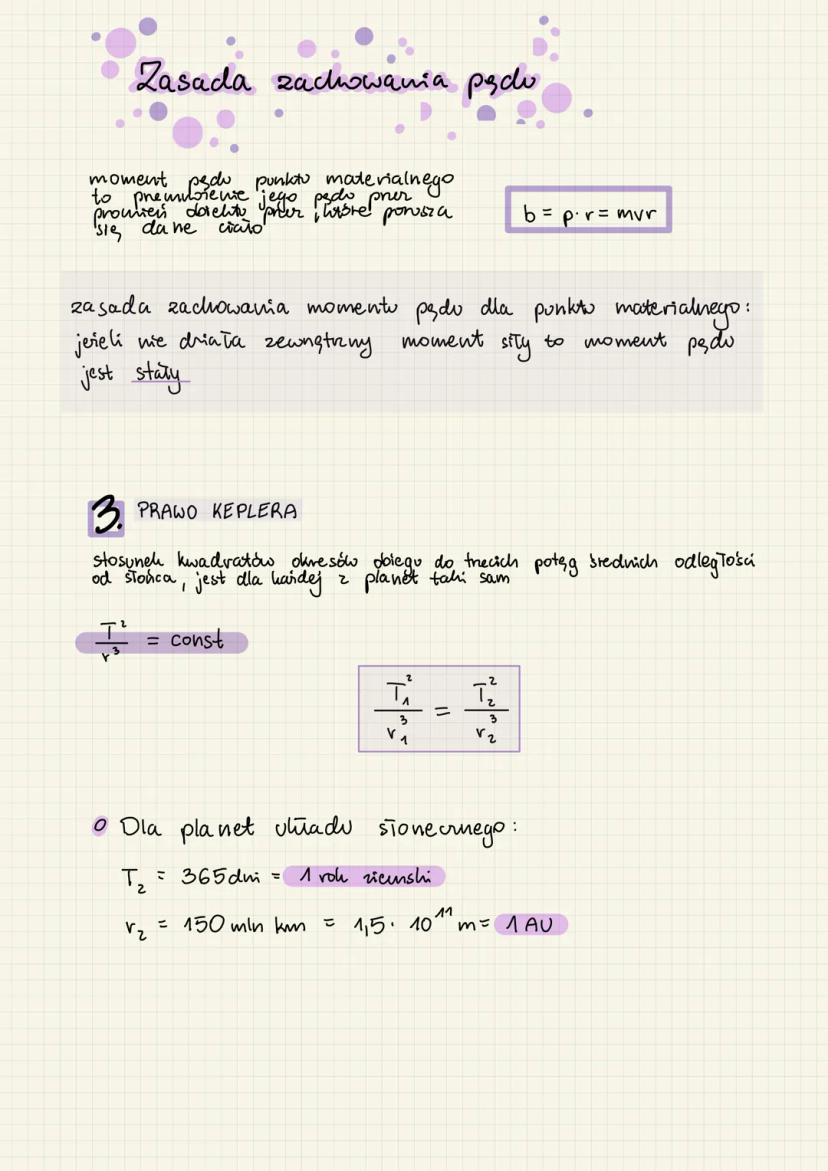 Zasada zachowania pędu
moment pędu punktu materialnego
to przemnożenie jego pędu przez
promień obiektu przez które porusza
się dane ciało
b = p · r = mvr
zasada zachowania momentu pędu dla punktu materialnego:
jeżeli nie działa zewnętrzny moment siły to moment pędu
jest stały
3. PRAWO KEPLERA
stosunek kwadratów okresów obiegu do trzecich potęg średnich odległości
od słońca, jest dla każdej z planet taki sam
T²/r³ = const
T₁²/r₁³ = T₂²/r₂³
Dla planet układu słonecznego:
T₂ = 365 dni = 1 rok ziemski
r₂ = 150 mln km = 1,5 · 10¹¹ m = 1 AU